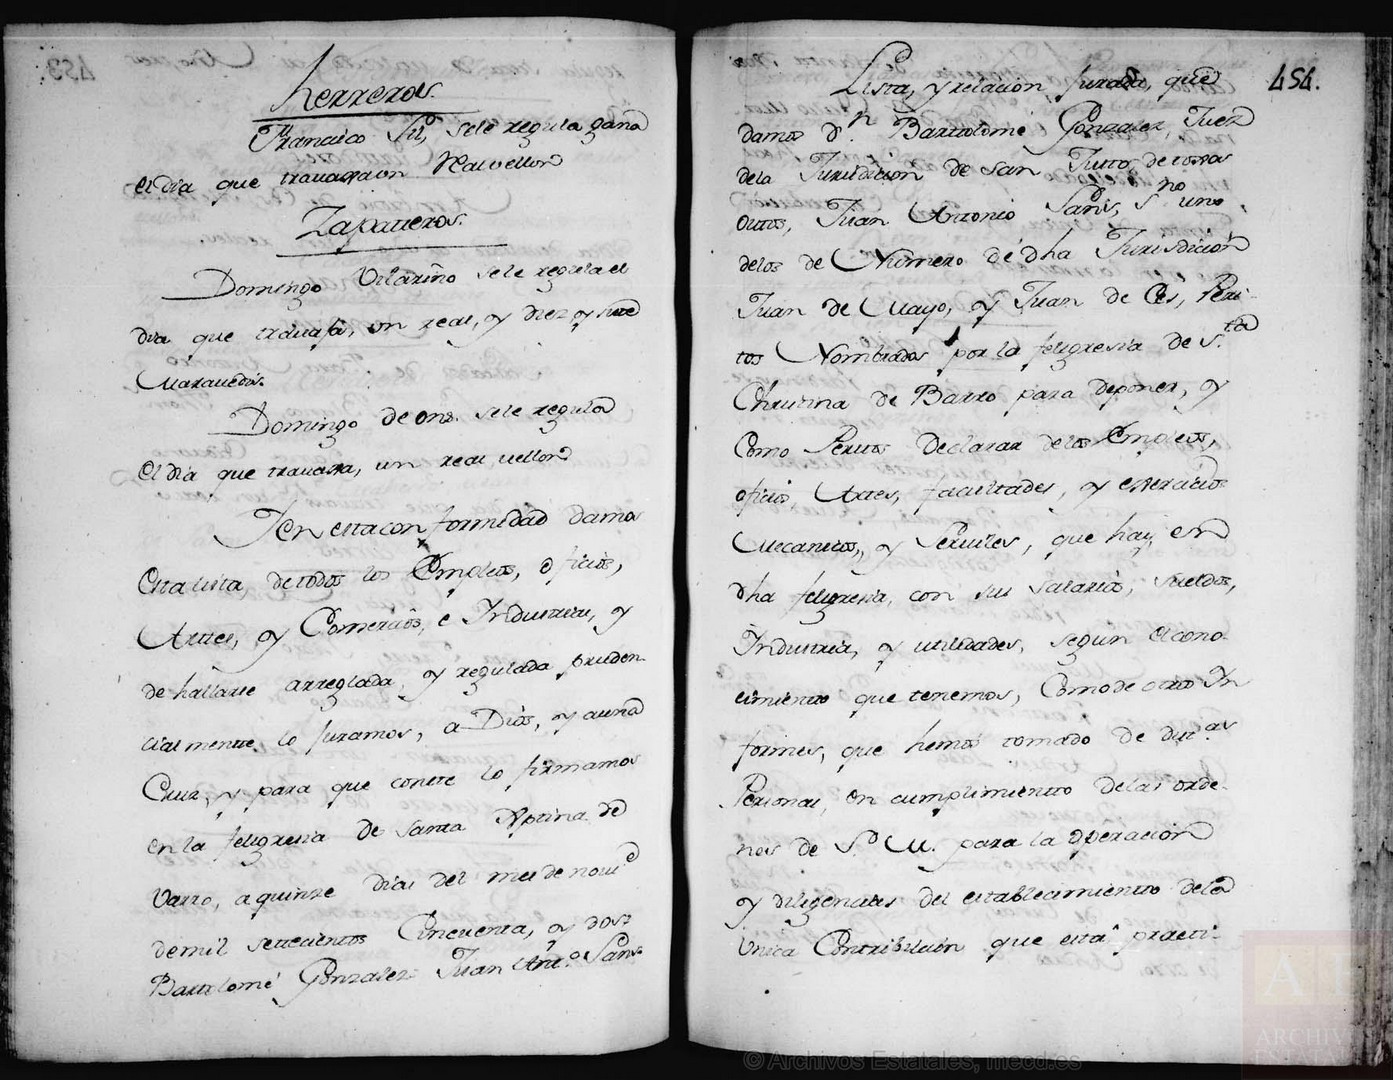 Herreros.
Francisco Gil, sele regula gana
el dia que travaxa un Real vellon
Zapatteros.
Domingo Vilariño sele regula el
dia que travaja, un real, y diez y siete
Maravedis.
Domingo de ons. sele regula
el dia que travaxa, un real, vellon
I en esta con formidad damos
esta lista, de todos los Empleos, oficios,
Arttes, y Comercios, e Industrias, y
de hallarse arreglada, y regulada pruden-
cial mente, lo juramos, a Dios, y auna
Cruz, y para que conste lo firmamos
en la feligresia de Santa Xptina de
Varro, a quinze dias del mes de novi.e
de mil settecientos Cincuenta, y dos=
Bartolomé Gonzalez= Juan Ant.o Sans=
454.
Lista, y relacion jurada, que
damos d.n Bartolomé Gonzalez, Juez
dela Jurisdicion de San Justo de tojos
outos, Juan Antonio Sans, S.no uno
delos de Numero de dha Jurisdicion
Juan de Mayo, y Juan de Ces, Peri-
tos Nombrados por la feligresia de S.ta
Christina de Barro para deponer, y
Como Peritos Declarar de los Empleos,
oficios Artes, facultades, y exercicios
Mecanicos, y Serviles, que hay en
dha feligresia, con sus salarios, sueldos,
Industria, y utilidades, segun el cono-
cimiento que tenemos, Como de otros In
formes, que hemos tomado de dist.as
Personas, en cumplimientto de las orde-
nes de S. M. para la operacion
y diligencias del establecimientto dela
Unica Contribucion que está practi-
© Archivos Estatales, mecd.es
ARCHIVOS
ESTATALES